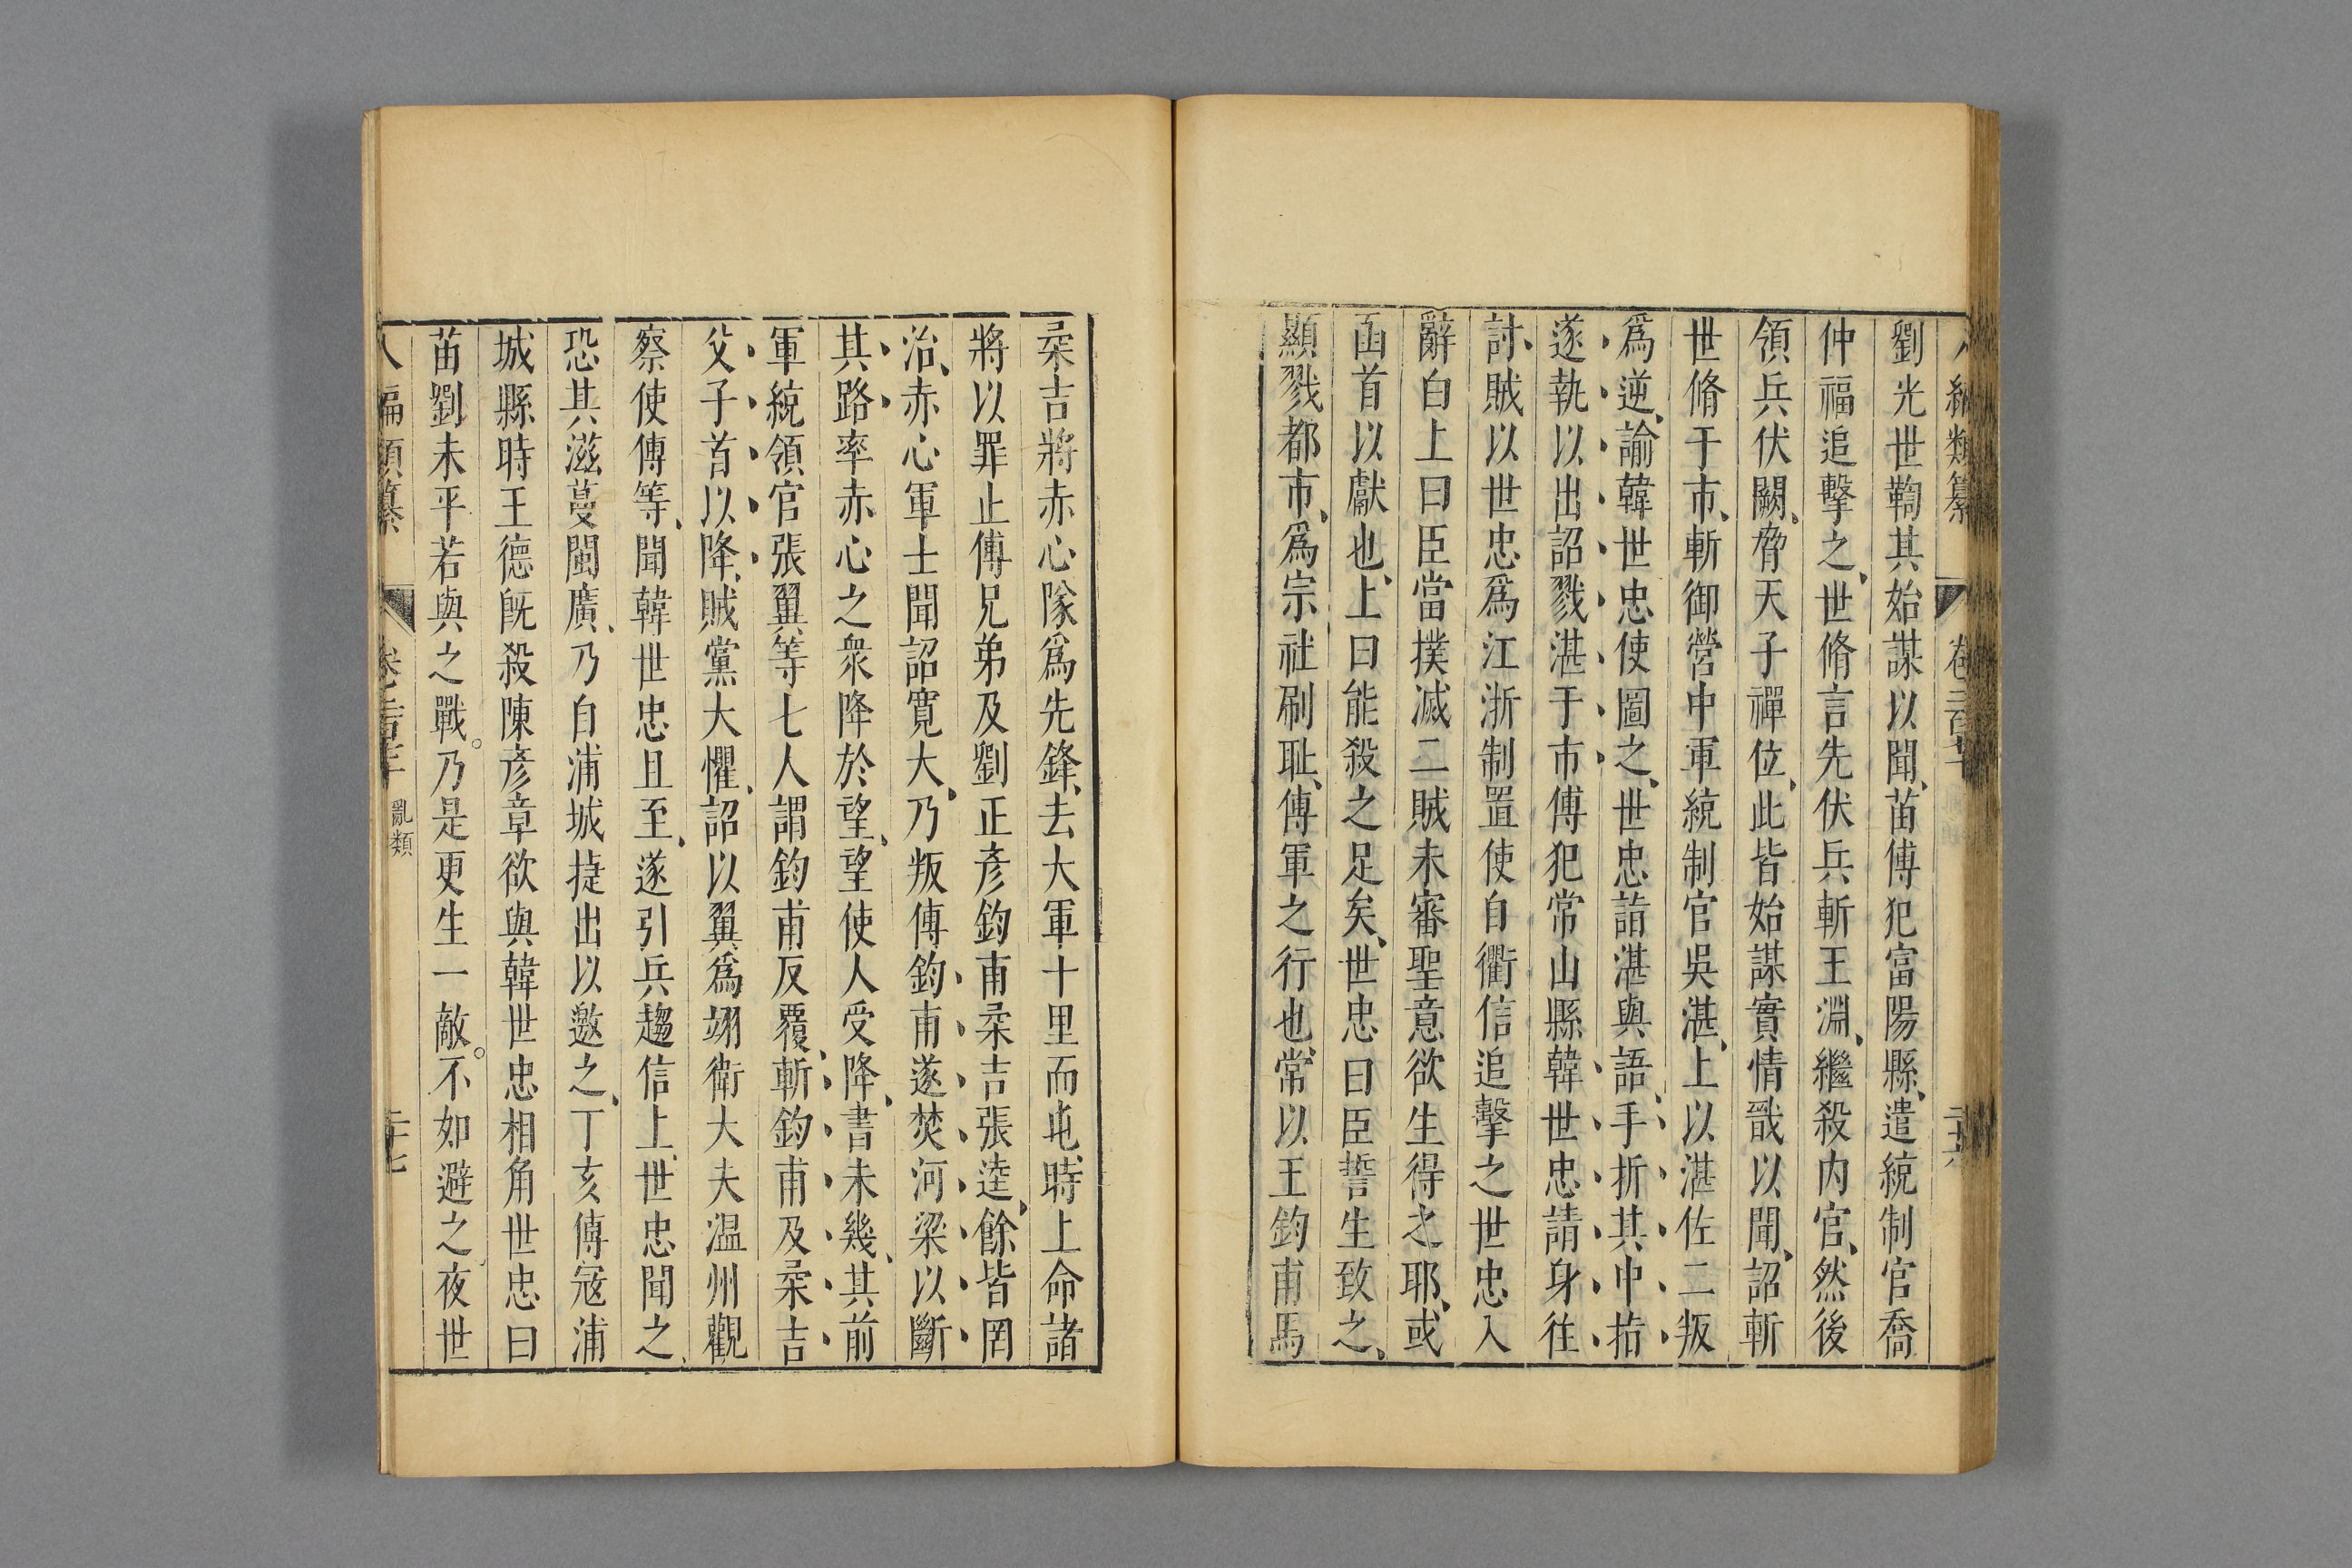 劉光世鞫其始謀以聞、苗傅犯富陽縣、遣統制官喬
仲福追擊之、世脩言先伏兵斬王淵、繼殺内官、然後
領兵伏闕、脅天子禪位、此皆始謀實情戠以聞、詔斬
世脩于市、斬御營中軍統制官吳湛、上以湛佐二叛
爲逆、諭韓世忠使圖之、世忠詣湛與語、手折其中指
遂執以出詔戮湛于市傅犯常山縣韓世忠請身往
討、賊以世忠爲江浙制置使自衢信追擊之世忠入
辭白上曰臣當撲滅二賊未審聖意欲生得之耶、或
函首以獻也、上曰能殺之足矣、世忠曰臣誓生致之、
顯戮都市、爲宗社刷耻、傅軍之行也、常以王鈞甫馬
柔吉將赤心隊爲先鋒、去大軍十里而屯、時上命諸
將以罪止傅兄弟及劉正彦鈞甫柔吉張逵、餘皆罔
治、赤心軍士聞詔寛大、乃叛傅鈞甫遂焚河梁以斷
其路率赤心之衆降於望、望使人受降、書未幾、其前
軍統領官張翼等七人謂鈞甫反覆、斬鈞甫及柔吉
父子首以降、賊黨大懼、詔以翼爲翊衛大夫温州觀
察使傅等、聞韓世忠且至、遂引兵趨信上、世忠聞之、
恐其滋蔓閩廣、乃自浦城捷出以邀之、丁亥傅冦浦
城縣時王德旣殺陳彦章欲與韓世忠相角世忠曰
苗劉未平若與之戰。乃是更生一敵。不如避之夜世
八編類纂
亂類
二十七